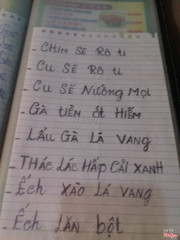 - Chim Sẽ Rô ti
- Cu Sẽ Rô ti
- Cu Sẽ Nướng Mọi
- Gà tiềm ớt Hiểm
- Lẩu Gà Lá Vang
- Thác Lác Hấp Cải Xanh
- Ếch Xào Lá Vang
- Ếch Lăn bột